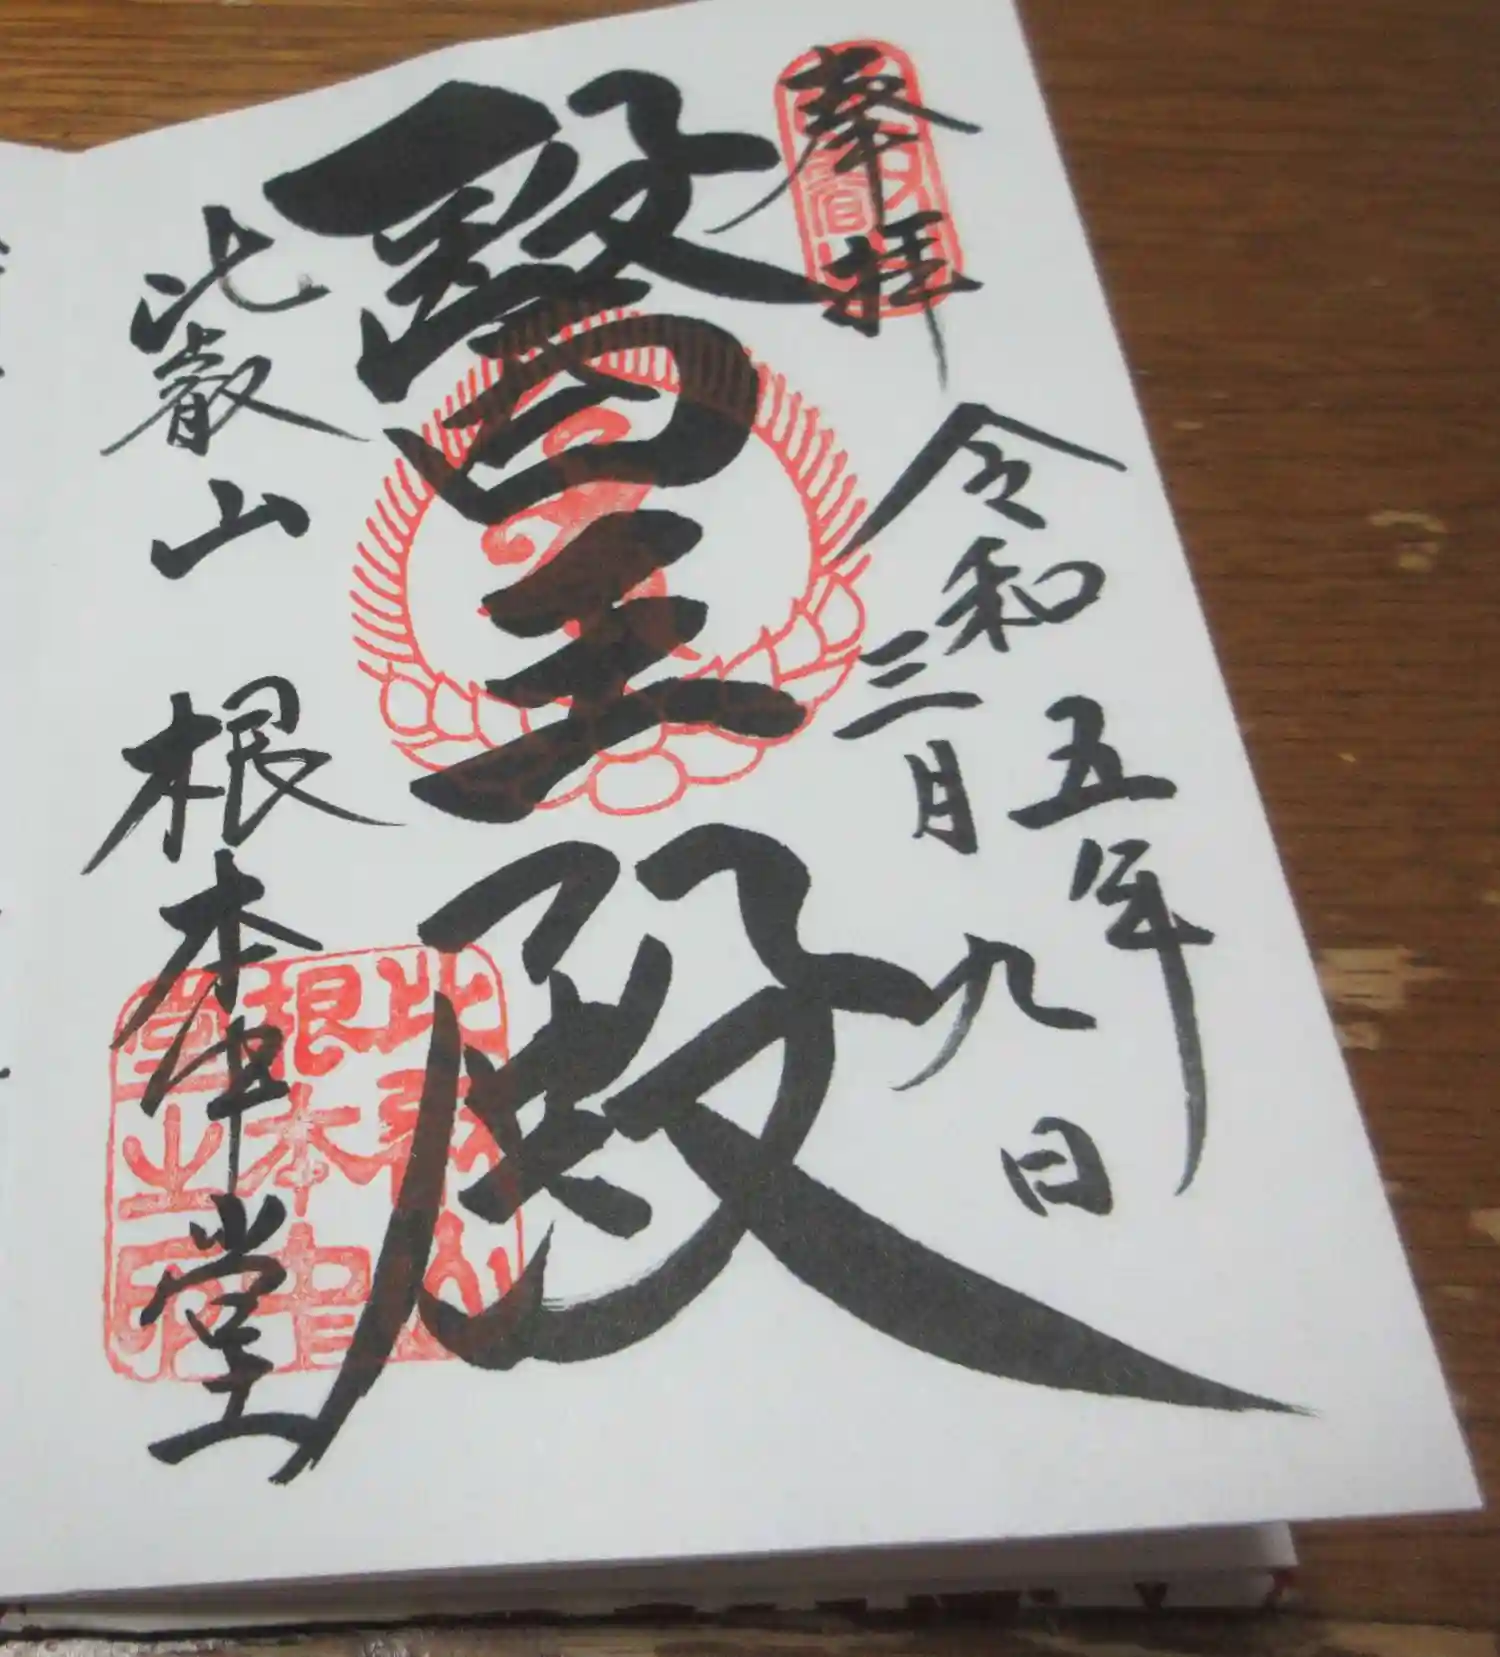 奉拝
令和五年
三月九日
醫王殿
比叡山 根本中堂
比叡山
根本中
堂之印